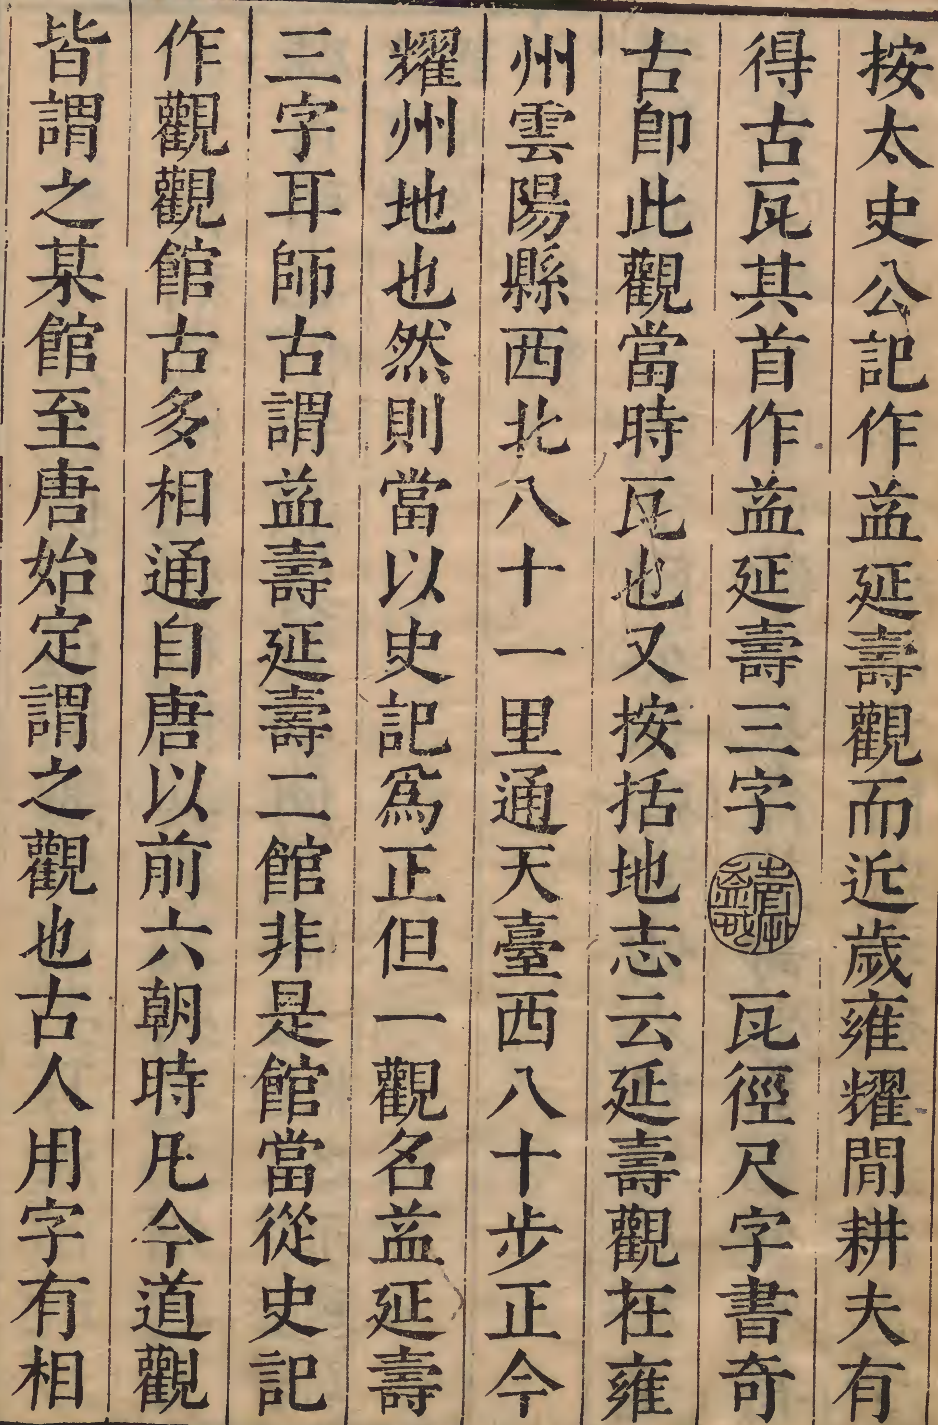 按太史公記作益延壽觀而近歲雍耀閒耕夫有
得古瓦其首作益延壽三字 瓦徑尺字書奇
古卽此觀當時瓦也又按括地志云延壽觀在雍
州雲陽縣西北八十一里通天臺西八十步正今
耀州地也然則當以史記爲正但一觀名益延壽
三字耳師古謂益壽延壽二館非是館當從史記
作觀觀館古多相通自唐以前六朝時凡今道觀
皆謂之某館至唐始定謂之觀也古人用字有相